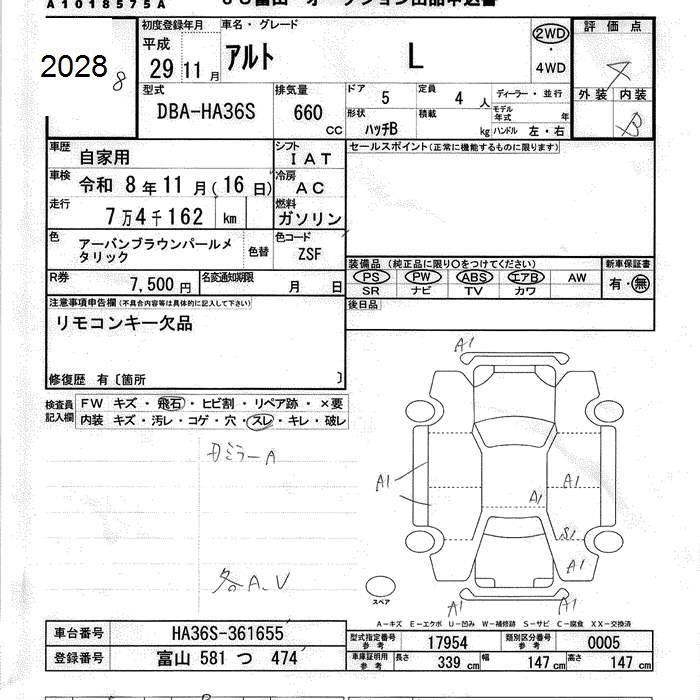 A1018575A
2028
8
初度登録年月 車名・グレード 評価点
平成
29 11月 アルト L 2WD
・
4WD
外装 内装
B
型式 排気量 ドア 5 定員 4 人 ディーラー・並行
DBA-HA36S 660 cc 形状 ハッチB 積載 kg モデル年式 年
ハンドル 左・右
車歴 自家用 シフト IAT セールスポイント(正常に機能するものに限ります)
車検 令和 8年11月(16日) 冷房 AC
走行 7万4千162 km 燃料 ガソリン
色 アーバンブラウンパールメタリック 色替 色コード ZSF
装備品(純正品に限り○をつけてください) 新車保証書
PS PW ABS エアB AW 有・無
SR ナビ TV カワ
R券 7,500円 名変通知期限 月 日
後日品
注意事項申告欄(不具合内容等は具体的に記入して下さい)
リモコンキー欠品
修復歴 有〔箇所 〕
検査員記入欄 FW キズ・飛石・ヒビ割・リペア跡・×要
内装 キズ・汚レ・コゲ・穴・スレ・キレ・破レ
ミラーA
各A.V
A1
A1
A1
A1
S1
A1
A1
A1
スペア
A-キズ E-エクボ U-凹み W-補修跡 S-サビ C-腐食 XX-交換済
車台番号 HA36S-361655
登録番号 富山 581 つ 474
型式指定番号 参考 17954 類別区分番号 参考 0005
車庫証明用 参考 長さ 339 cm 幅 147 cm 高さ 147 cm